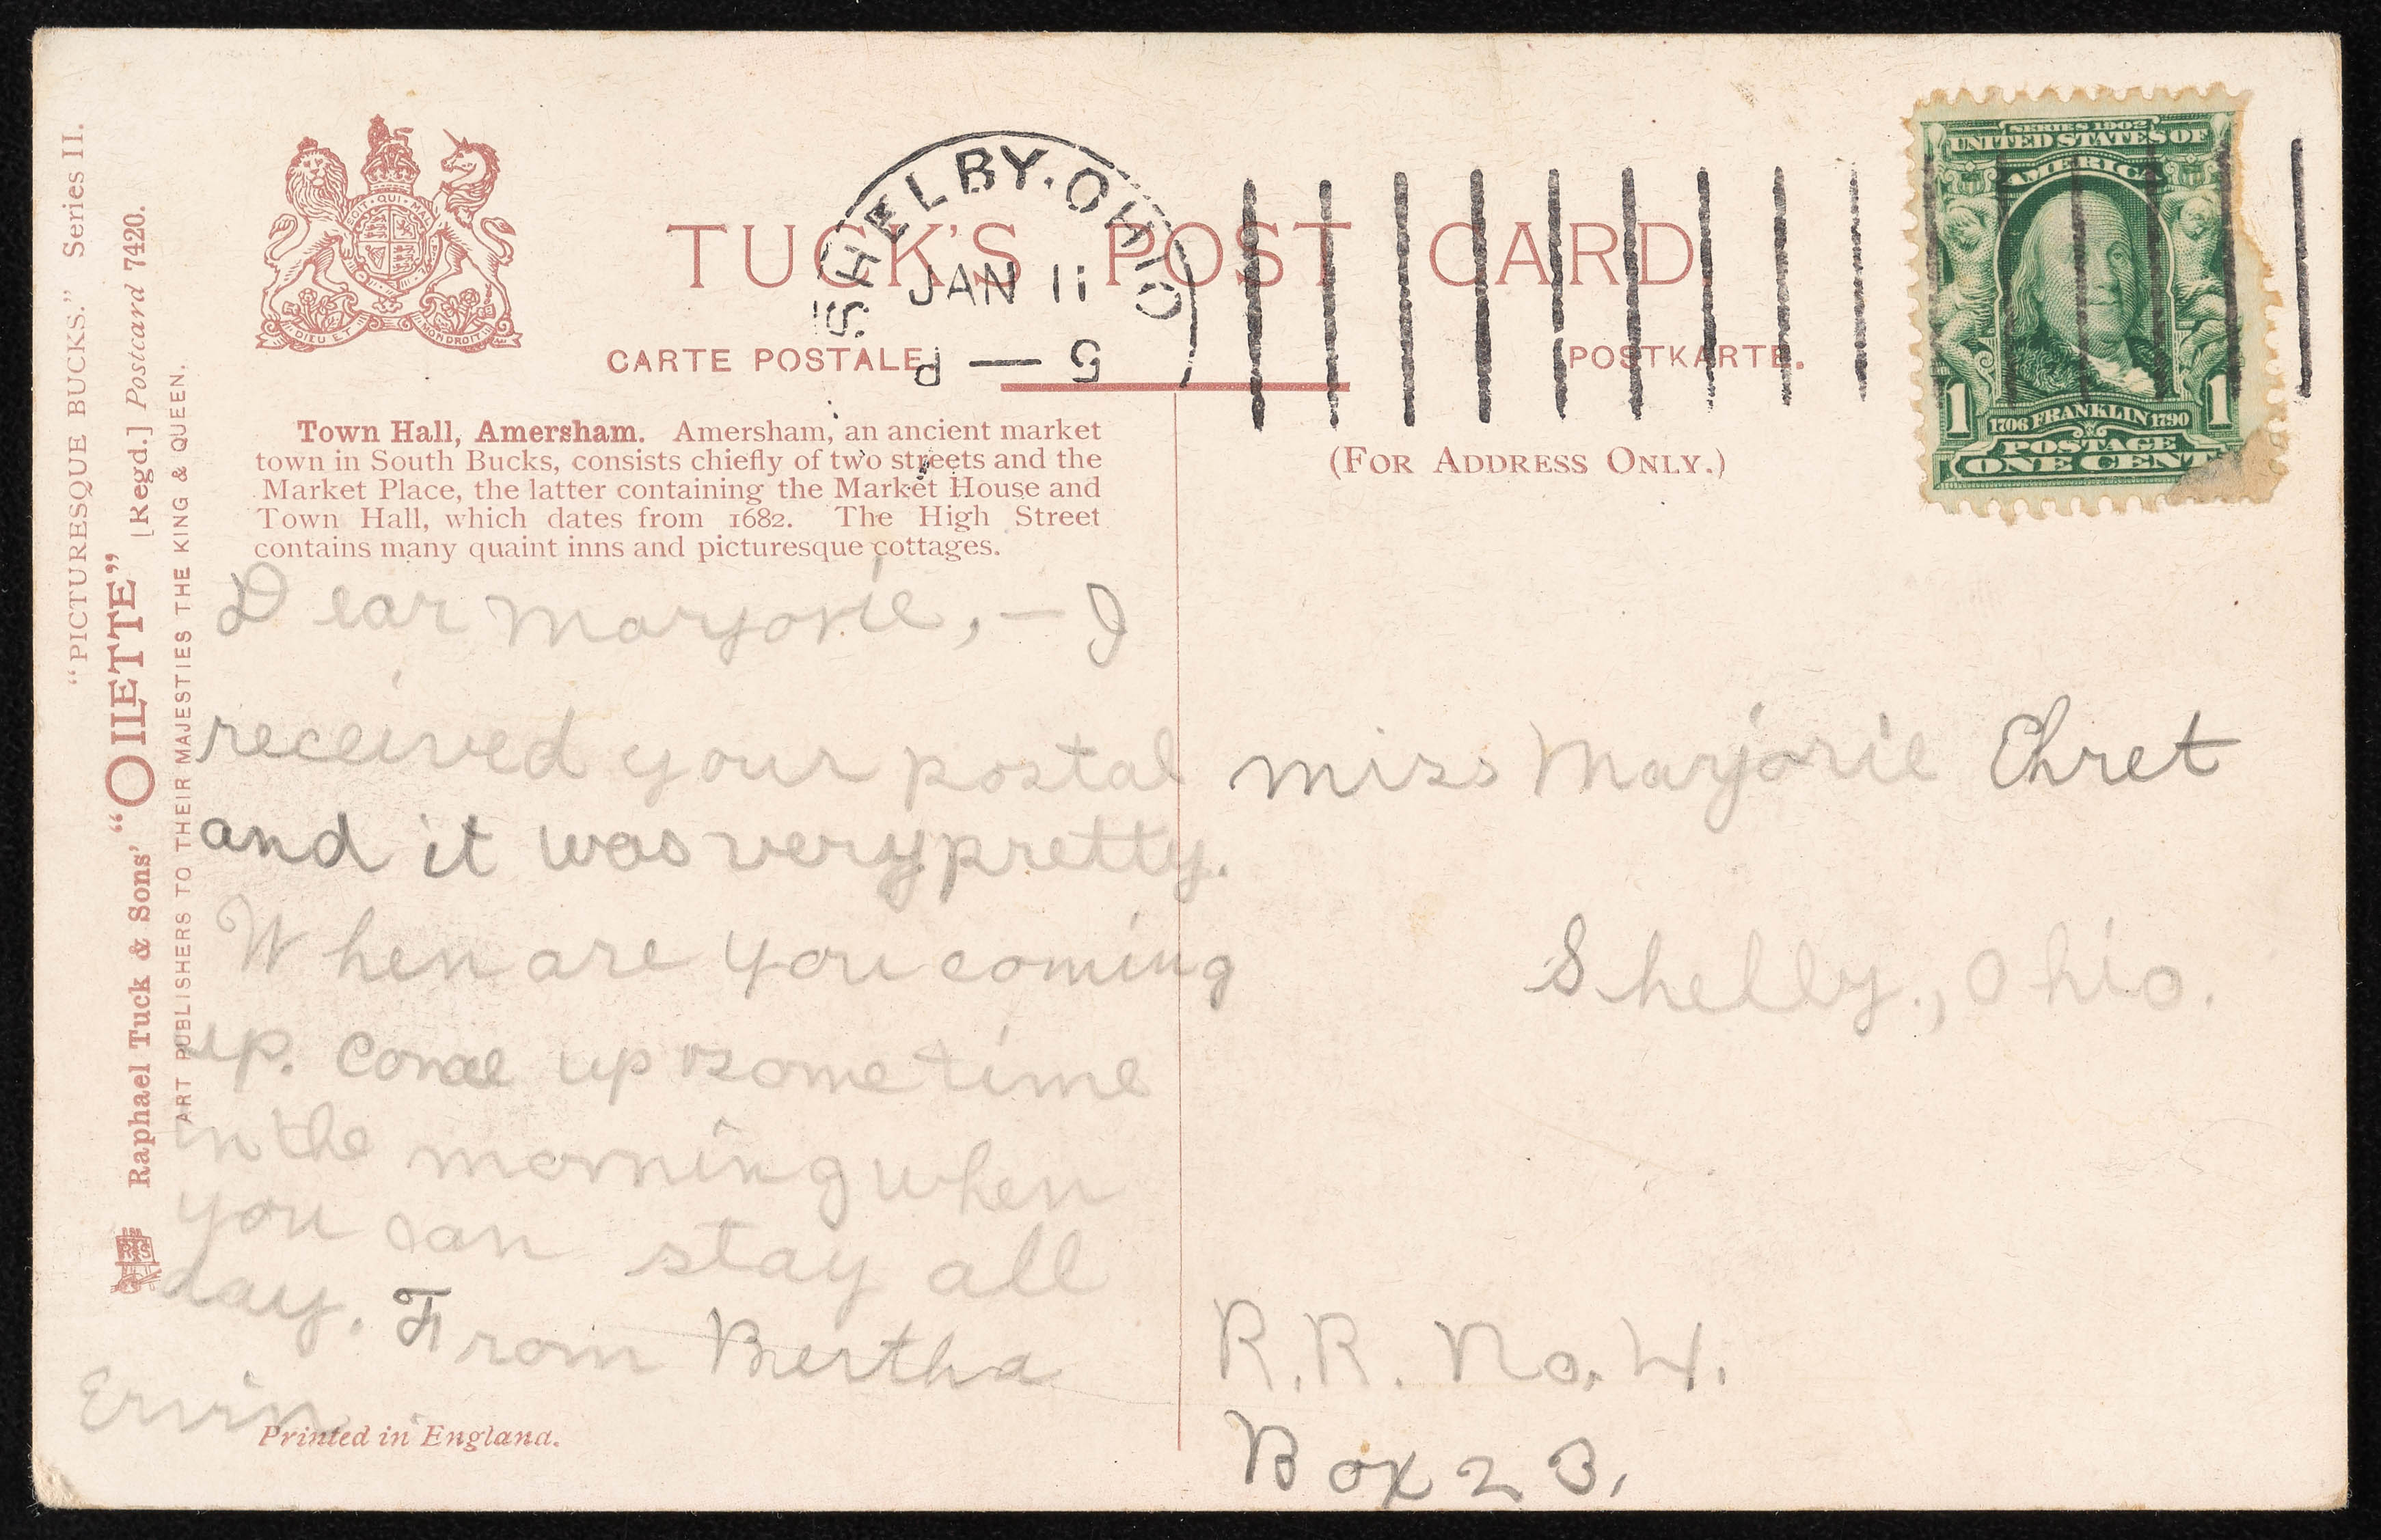 "PICTURESQUE BUCKS." Series II.
Raphael Tuck & Sons' "OILETTE" [Regd.] Postcard 7420.
ART PUBLISHERS TO THEIR MAJESTIES THE KING & QUEEN.
DIEU ET MON DROIT
TUCK'S POST CARD.
CARTE POSTALE POSTKARTE.
SHELBY. OHIO
JAN 11
5 — P
SERIES 1902
UNITED STATES OF
AMERICA
1 1706 FRANKLIN 1790 1
POSTAGE
ONE CENT
Town Hall, Amersham. Amersham, an ancient market
town in South Bucks, consists chiefly of two streets and the
Market Place, the latter containing the Market House and
Town Hall, which dates from 1682. The High Street
contains many quaint inns and picturesque cottages.
(FOR ADDRESS ONLY.)
Dear Marjorie, — I
received your postal
and it was very pretty.
When are you coming
up. Come up some time
in the morning when
you can stay all
day. From Bertha
Ervin.
Printed in England.
Miss Marjorie Ehret
Shelby., Ohio.
R.R. No. 4.
Box 23.